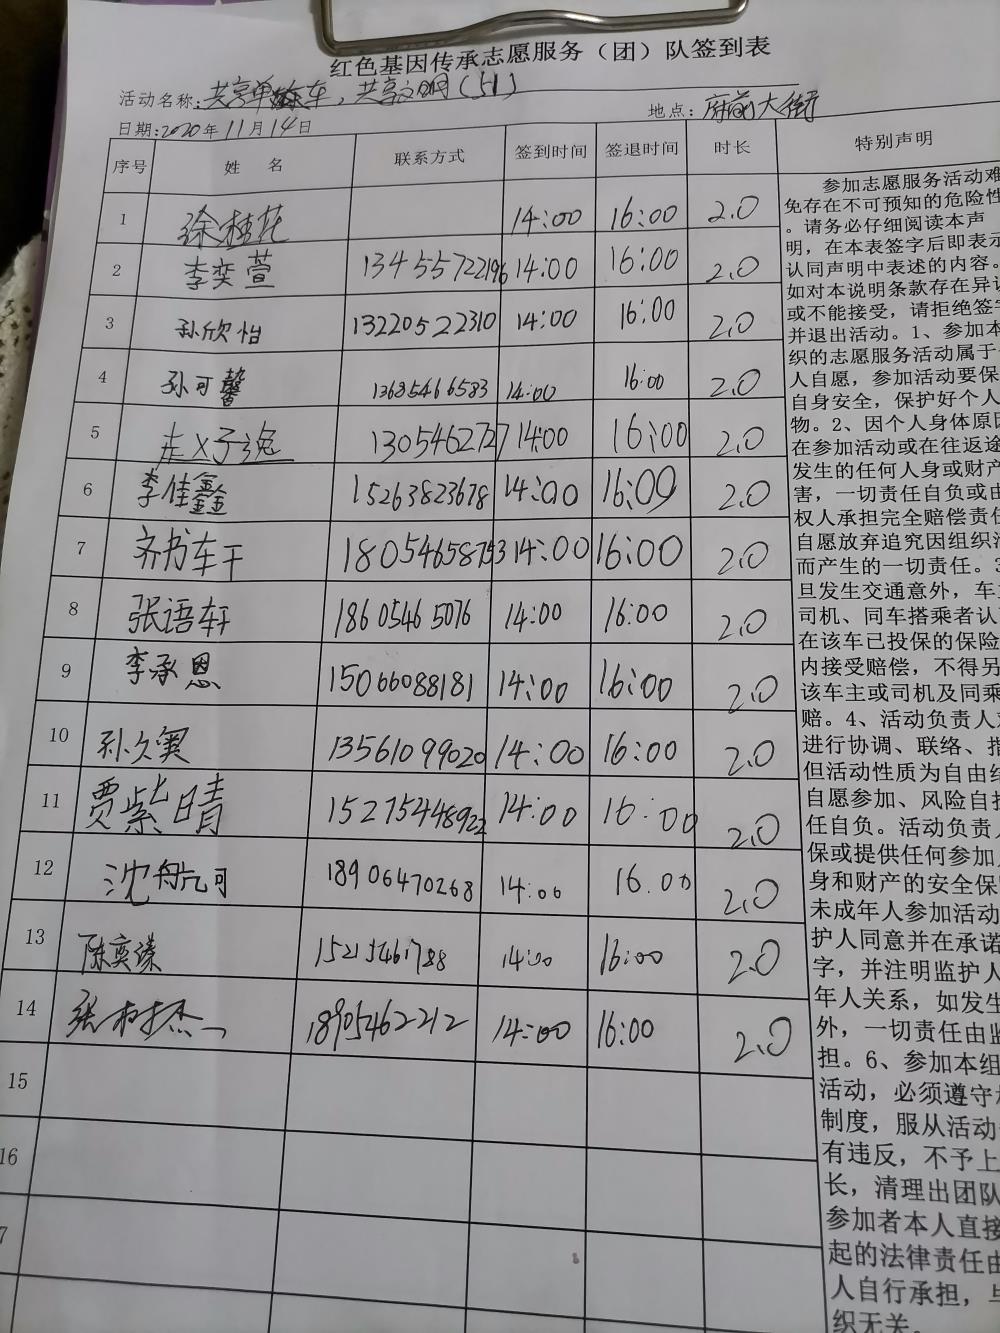 红色基因传承志愿服务（团）队签到表
活动名称: 共享单车，共享文明（51）
地点: 府前大街
日期: 2020年11月14日
序号 姓 名 联系方式 签到时间 签退时间 时长 特别声明
1 徐桂花 14:00 16:00 2.0
2 李奕萱 13455722196 14:00 16:00 2.0
3 孙欣怡 13220522310 14:00 16:00 2.0
4 孙可馨 13685466583 14:00 16:00 2.0
5 赵子逸 1305462727 14:00 16:00 2.0
6 李佳鑫 15263823678 14:00 16:00 2.0
7 齐书车干 18054658753 14:00 16:00 2.0
8 张语轩 18605465076 14:00 16:00 2.0
9 李承恩 15066088181 14:00 16:00 2.0
10 孙久奥 13561099020 14:00 16:00 2.0
11 贾紫晴 15275448922 14:00 16:00 2.0
12 沈航可 18906470268 14:00 16.00 2.0
13 陈奕臻 15215461788 14:00 16:00 2.0
14 张树杰 18905462212 14:00 16:00 2.0
15
16
7
参加志愿服务活动难
免存在不可预知的危险性
。请务必仔细阅读本声
明，在本表签字后即表示
认同声明中表述的内容。
如对本说明条款存在异议
或不能接受，请拒绝签字
并退出活动。1、参加本
织的志愿服务活动属于
人自愿，参加活动要保
自身安全，保护好个人
物。2、因个人身体原因
在参加活动或在往返途
发生的任何人身或财产
害，一切责任自负或由
权人承担完全赔偿责任
自愿放弃追究因组织活
而产生的一切责任。3
旦发生交通意外，车主
司机、同车搭乘者认
在该车已投保的保险
内接受赔偿，不得另
该车主或司机及同乘
赔。4、活动负责人对
进行协调、联络、指
但活动性质为自由结
自愿参加、风险自担
任自负。活动负责人
保或提供任何参加人
身和财产的安全保
未成年人参加活动
护人同意并在承诺
字，并注明监护人
年人关系，如发生
外，一切责任由监
担。6、参加本组
活动，必须遵守
制度，服从活动
有违反，不予上
长，清理出团队
参加者本人直接
起的法律责任由
人自行承担，与
织无关。